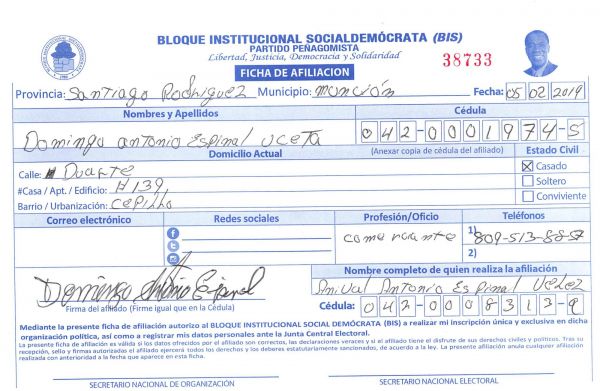 BLOQUE INSTITUCIONAL SOCIALDEMÓCRATA (BIS)
PARTIDO PEÑAGOMISTA
Libertad, Justicia, Democracia y Solidaridad
38733
FICHA DE AFILIACION
Provincia: Santiago Rodriguez Municipio: monción Fecha: 05 02 2019
Nombres y Apellidos Cédula
Domingo antonio Espinal Uceta 042-0001974-5
Domicilio Actual (Anexar copia de cédula del afiliado) Estado Civil
Calle: Duarte Casado
#Casa / Apt. / Edificio: #139 Soltero
Barrio / Urbanización: Conviviente
Correo electrónico Redes sociales Profesión/Oficio Teléfonos
comerciante 1) 809-513-8857
2)
Nombre completo de quien realiza la afiliación
Domingo Antonio Espinal Anival Antonio Espinal
Firma del afiliado (Firme igual que en la Cédula) Cédula: 042-0008313-9
Mediante la presente ficha de afiliación autorizo al BLOQUE INSTITUCIONAL SOCIAL DEMÓCRATA (BIS) a realizar mi inscripción única y exclusiva en dicha
organización política, así como a registrar mis datos personales ante la Junta Central Electoral.
La presente ficha de afiliación es válida si los datos ofrecidos por el afiliado son correctos, las declaraciones veraces y si el afiliado tiene el disfrute de sus derechos civiles y políticos. Tras su
recepción, sello y firmas autorizadas el afiliado ejercerá todos los derechos y los deberes estatutariamente sancionados, de acuerdo a la ley. La presente afiliación anula cualquier afiliación
realizada con anterioridad a la fecha que aparece en esta ficha.
SECRETARIO NACIONAL DE ORGANIZACIÓN SECRETARIO NACIONAL ELECTORAL